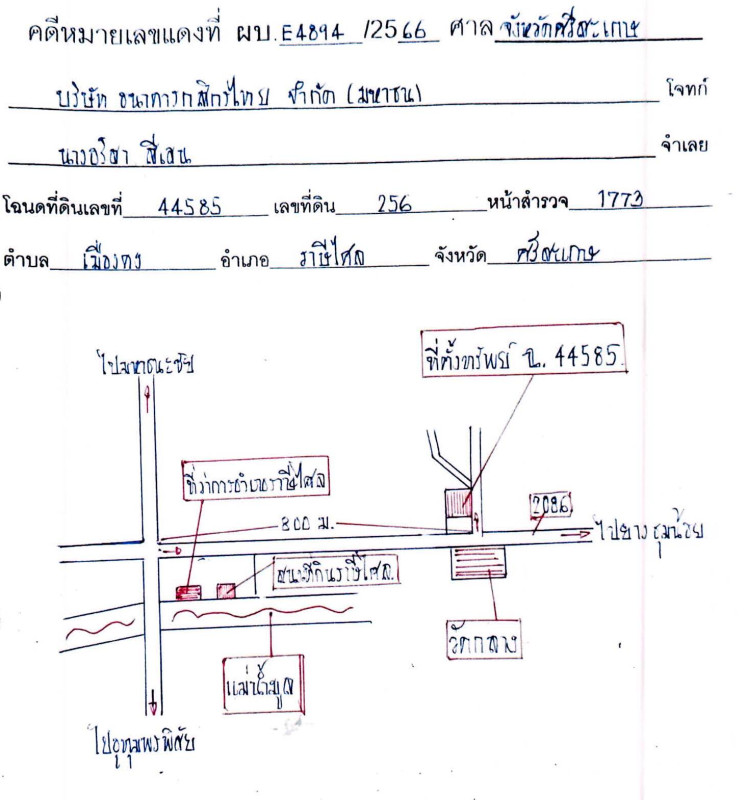 คดีหมายเลขแดงที่ ผบ. E4894 /2566 ศาล จังหวัดศรีสะเกษ
บริษัท ธนาคารกสิกรไทย จำกัด (มหาชน) โจทก์
นางอริสา สีเสน จำเลย
โฉนดที่ดินเลขที่ 44585 เลขที่ดิน 256 หน้าสำรวจ 1773
ตำบล เมืองคง อำเภอ ราษีไศล จังหวัด ศรีสะเกษ
ที่ตั้งทรัพย์ ฉ. 44585
ไปมหาชนะชัย
ที่ว่าการอำเภอราษีไศล
800 ม.
2086
ไปยางชุมน้อย
สนง.ที่ดินราษีไศล.
วัดกลาง
แม่น้ำมูล
ไปอุทุมพรพิสัย